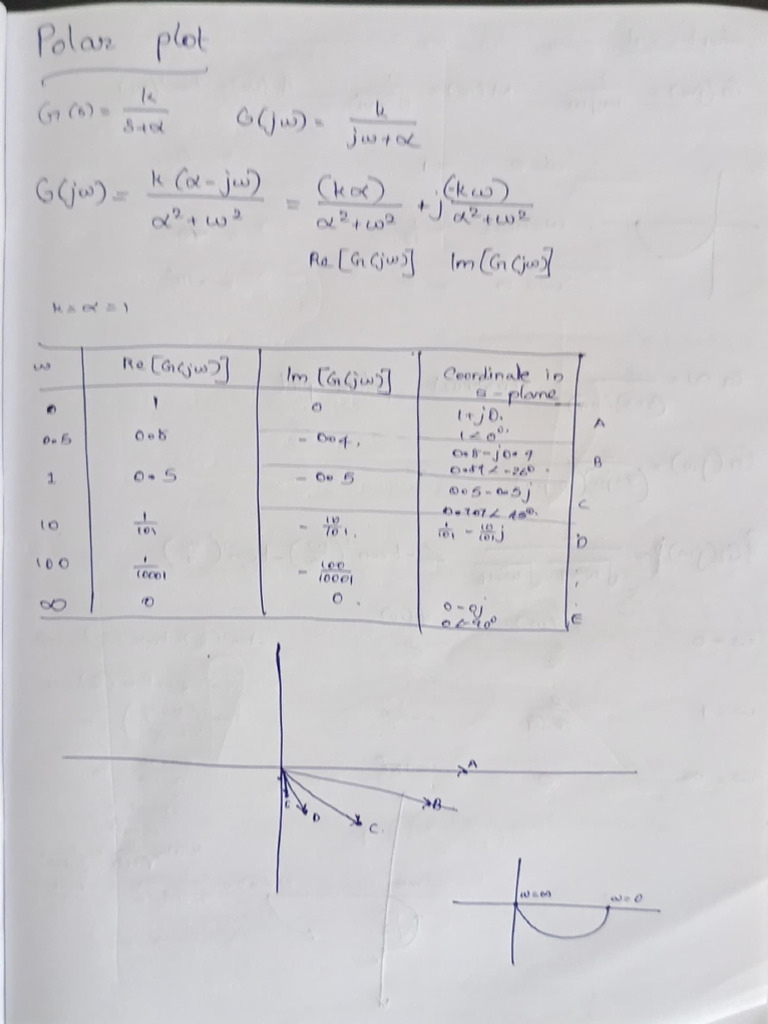 Polar plot
G(s) = k/(s+α) G(jω) = k/(jω+α)
G(jω) = k(α-jω)/(α²+ω²) = (kα)/(α²+ω²) + j(-kω)/(α²+ω²)
Re[G(jω)] Im[G(jω)]
k = α = 1
ω Re[G(jω)] Im[G(jω)] Coordinate in s-plane
0 1 0 1+j0. 1∠0°. A
0.5 0.8 -0.4. 0.8-j0.4 0.89∠-26°. B
1 0.5 -0.5 0.5-0.5j 0.707∠45°. C
10 1/101 -10/101. 1/101 - 10/101j D
100 1/10001 -100/10001
∞ 0 0. 0-0j 0∠90° E
A
B
C.
D
E
ω=∞ ω=0